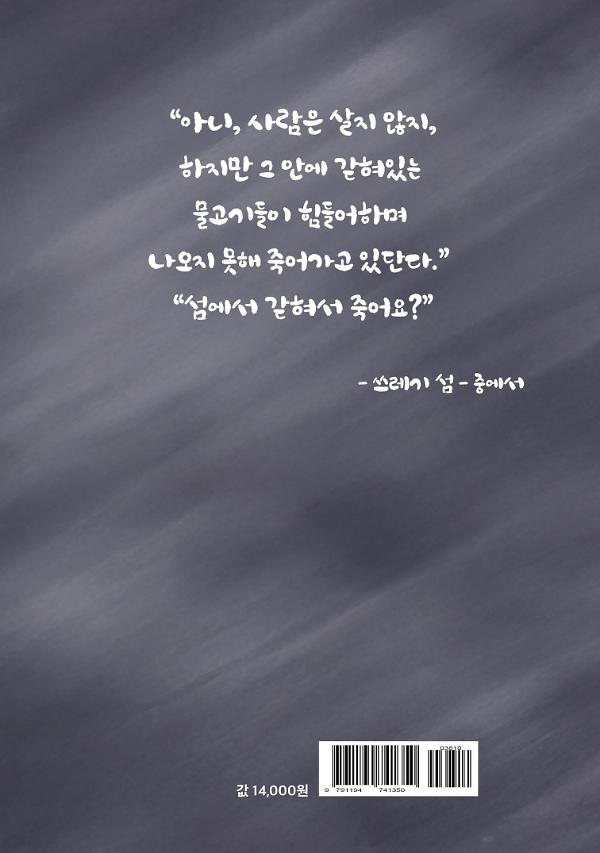 “아니, 사람은 살지 않지,
하지만 그 안에 갇혀있는
물고기들이 힘들어하며
나오지 못해 죽어가고 있단다.”
“섬에서 갇혀서 죽어요?”
- 쓰레기 섬 - 중에서
03810
값 14,000원
9 791194 741350